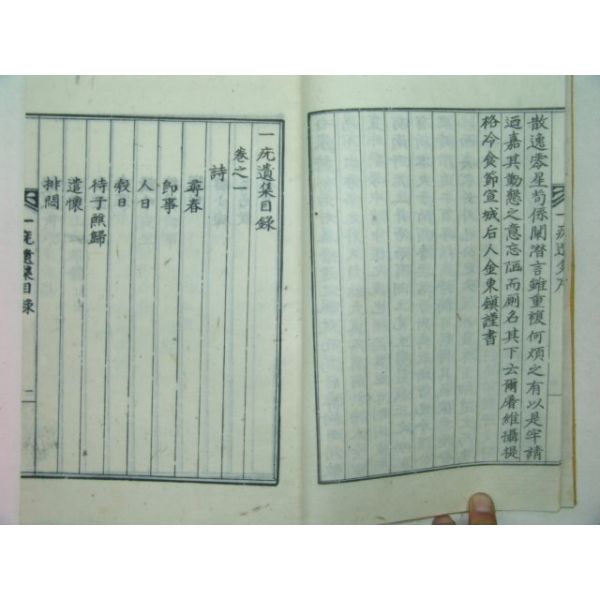 散逸零星苟係闡潛言雖重複何煩之有以是牢請
迺嘉其勤懇之意忘陋而副名其下云爾屠維攝提
格冷食節宣城后人金東鎭謹書
一疣遺集序
一疣遺集目錄
卷之一
詩
尋春
卽事
人日
穀日
待子熊歸
遣懷
排悶
一疣遺集目錄
一